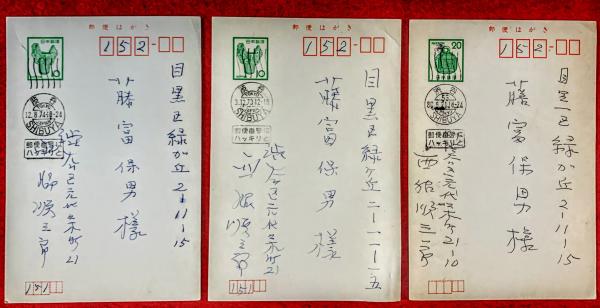 郵便はがき
152-
10
SHIBUYA
郵便番号は
ハッキリと
目黒区緑が丘2-11-15
藤富保男様
渋谷区元代々木町21
西脇順三郎
151
郵便はがき
152-
10
SHIBUYA
郵便番号は
ハッキリと
目黒区緑ヶ丘二-一一-一五
藤富保男様
渋谷区元代々木町21
西脇順三郎
151
郵便はがき
152-
20
SHIBUYA
郵便番号は
ハッキリと
目黒区緑が丘2-11-15
藤富保男様
渋谷区元代々木町21-10
西脇順三郎